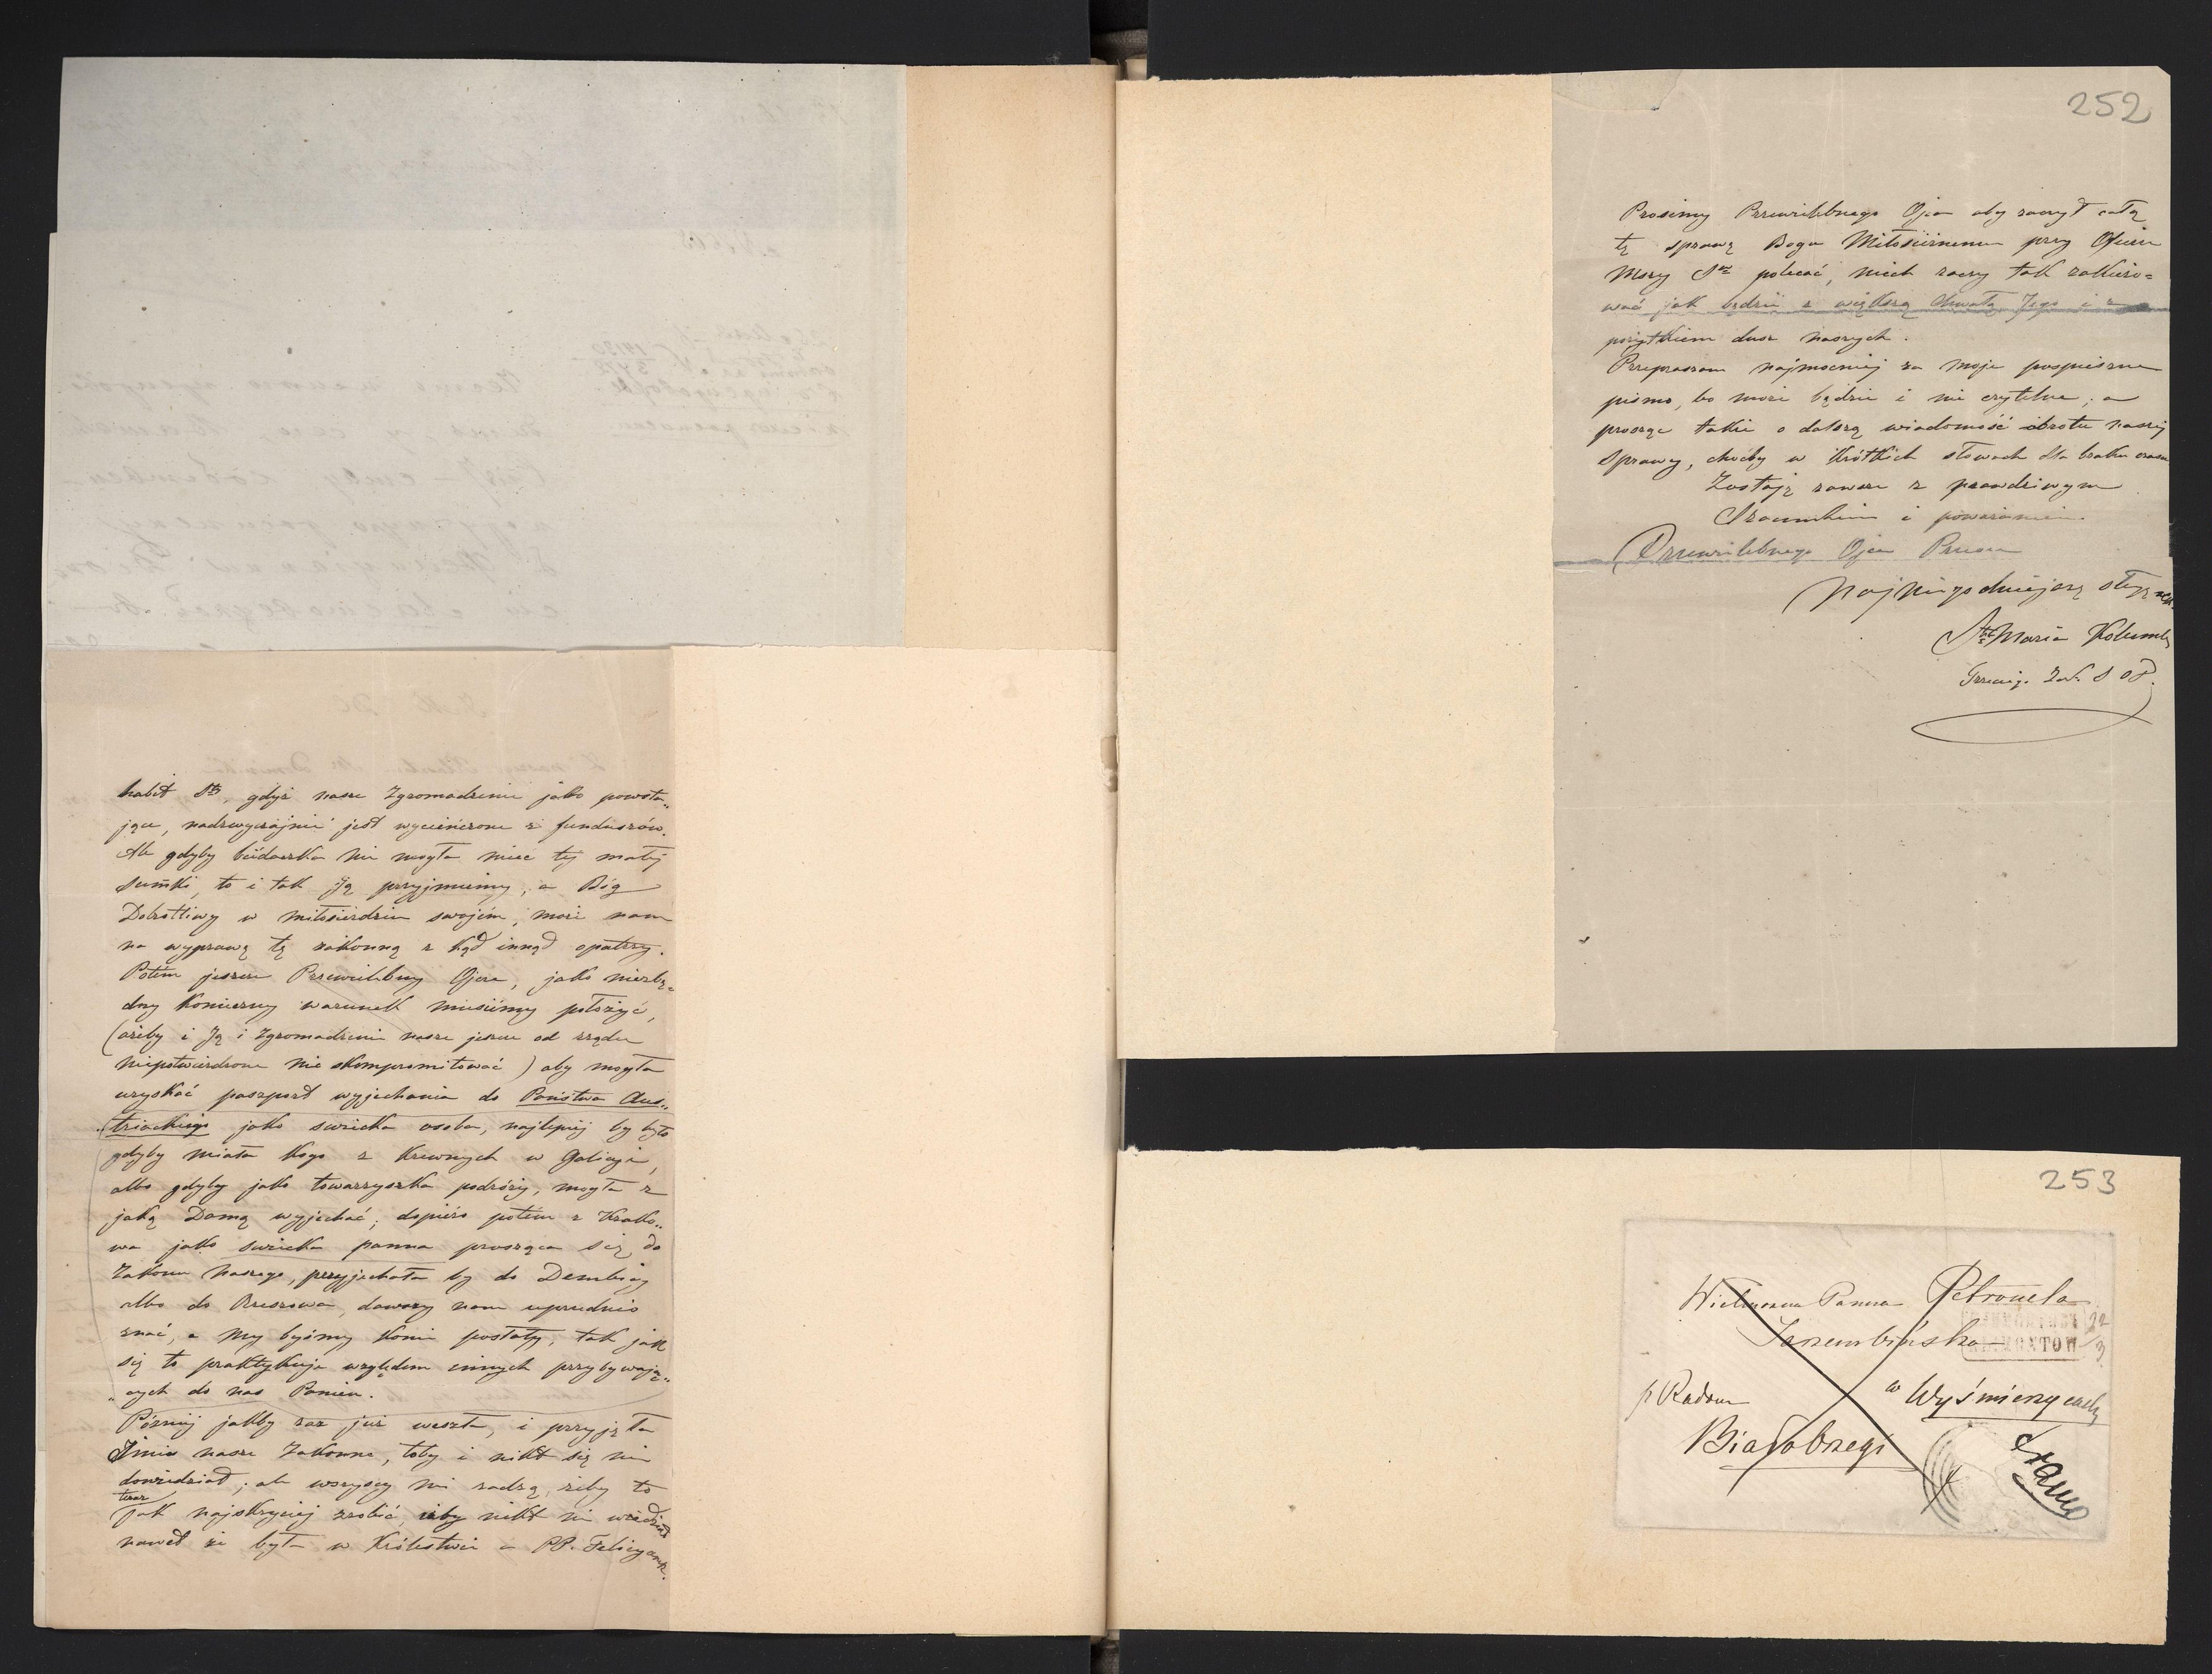 habit Sty, gdyż nasze Zgromadzenie jako powsta„
jące, nadzwyczajnie jest wycieńczone z funduszów.
Ale gdyby biédaczka nie mogła mieć téj małéj
Sumki, to i tak Ją przyjmiemy, a Bóg
Dobrotliwy w miłosierdziu swojém, może nam
na wyprawę tę zakonną z kąd innąd opatrzy.
Potém jeszcze Przewielebny Ojcze, jako niezbę=
dny konieczny warunek musiémy położyć,
(ażeby i Ją i Zgromadzenie nasze jeszcze od rządu
niepotwierdzone nie skompromitować) aby mogła
uzyskać paszport wyjechania do Państwa Aus„
„triackiego jako swiecka osoba, najlepiéj by było
gdyby miała kogo z krewnych w Galicyi,
albo gdyby jako towarzyszka podróży, mogła z
jaką Damą wyjechać; dopiéro potém z Krako„
wa jako swiecka panna prosząca się do
Zakonu naszego, przyjechała by do Dembicy
albo do Rzeszowa, dawszy nam uprzednio
znać, a My byśmy konie posłały, tak jak
się to praktykuje względem innych przybywają„
„cych do nas Panien.
Późniéj jakby raz już weszła, i przyjęła
Imie nasze Zakonne, toby i nikt się nie
dowiedział; ale wszyscy mi radzą, żeby to
teraz
jak najskryciéj zrobić, iżby nikt nie wiedział
nawet że była w Królestwie u PP. Felicyanek.
252
Prosimy Przewielebnego Ojca aby raczył całą
tę sprawę Bogu Miłosiernemu przy Ofierze
Mszy Stéj polecać, niech raczy tak zakiero=
wać jak będzie z większą Chwałą Jego i z
pożytkiem dusz naszych.
Przepraszam najmocniéj za moje pospieszne
pismo, bo może będzie i nie czytelne; a
prosząc także o dalszą wiadomość obrotu naszéj
Sprawy, choćby w krótkich słowach dla braku czasu
Zostaję zawsze z prawdziwym
Szacunkiem i poważaniem.
Przewielebnego Ojca
najniegodniejszą sługą
Maria Kolumba
253
Wielmożna Panna Petronela
Jarzembińska
22/3
w Wyśmierzycach
p Radom
Białobrzegi
franco